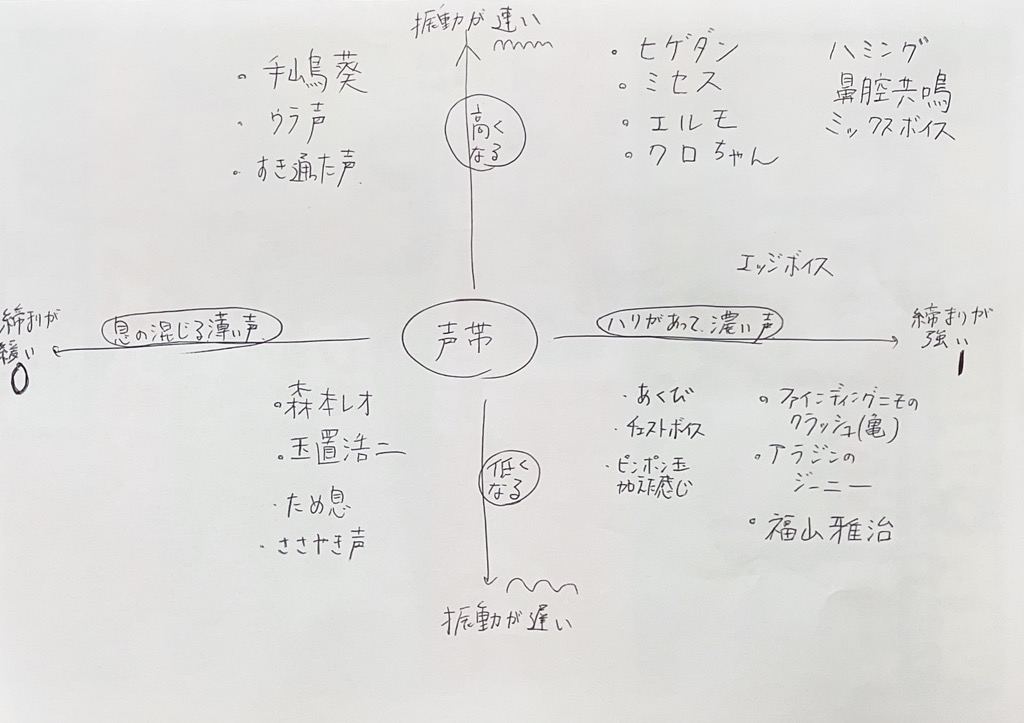 振動が速い
・手嶌葵
・ウラ声
・すき通った声
高く
なる
・ヒゲダン
・ミセス
・エルモ
・クロちゃん
ハミング
鼻腔共鳴
ミックスボイス
エッジボイス
締まりが
緩い
0
息の混じる薄い声
声帯
ハリがあって、濃い声
締まりが
強い
1
・森本レオ
・玉置浩二
・ため息
・ささやき声
低く
なる
・あくび
・チェストボイス
・ピンポン玉
加えた感じ
・ファインディングニモの
クラッシュ(亀)
・アラジンの
ジーニー
・福山雅治
振動が遅い